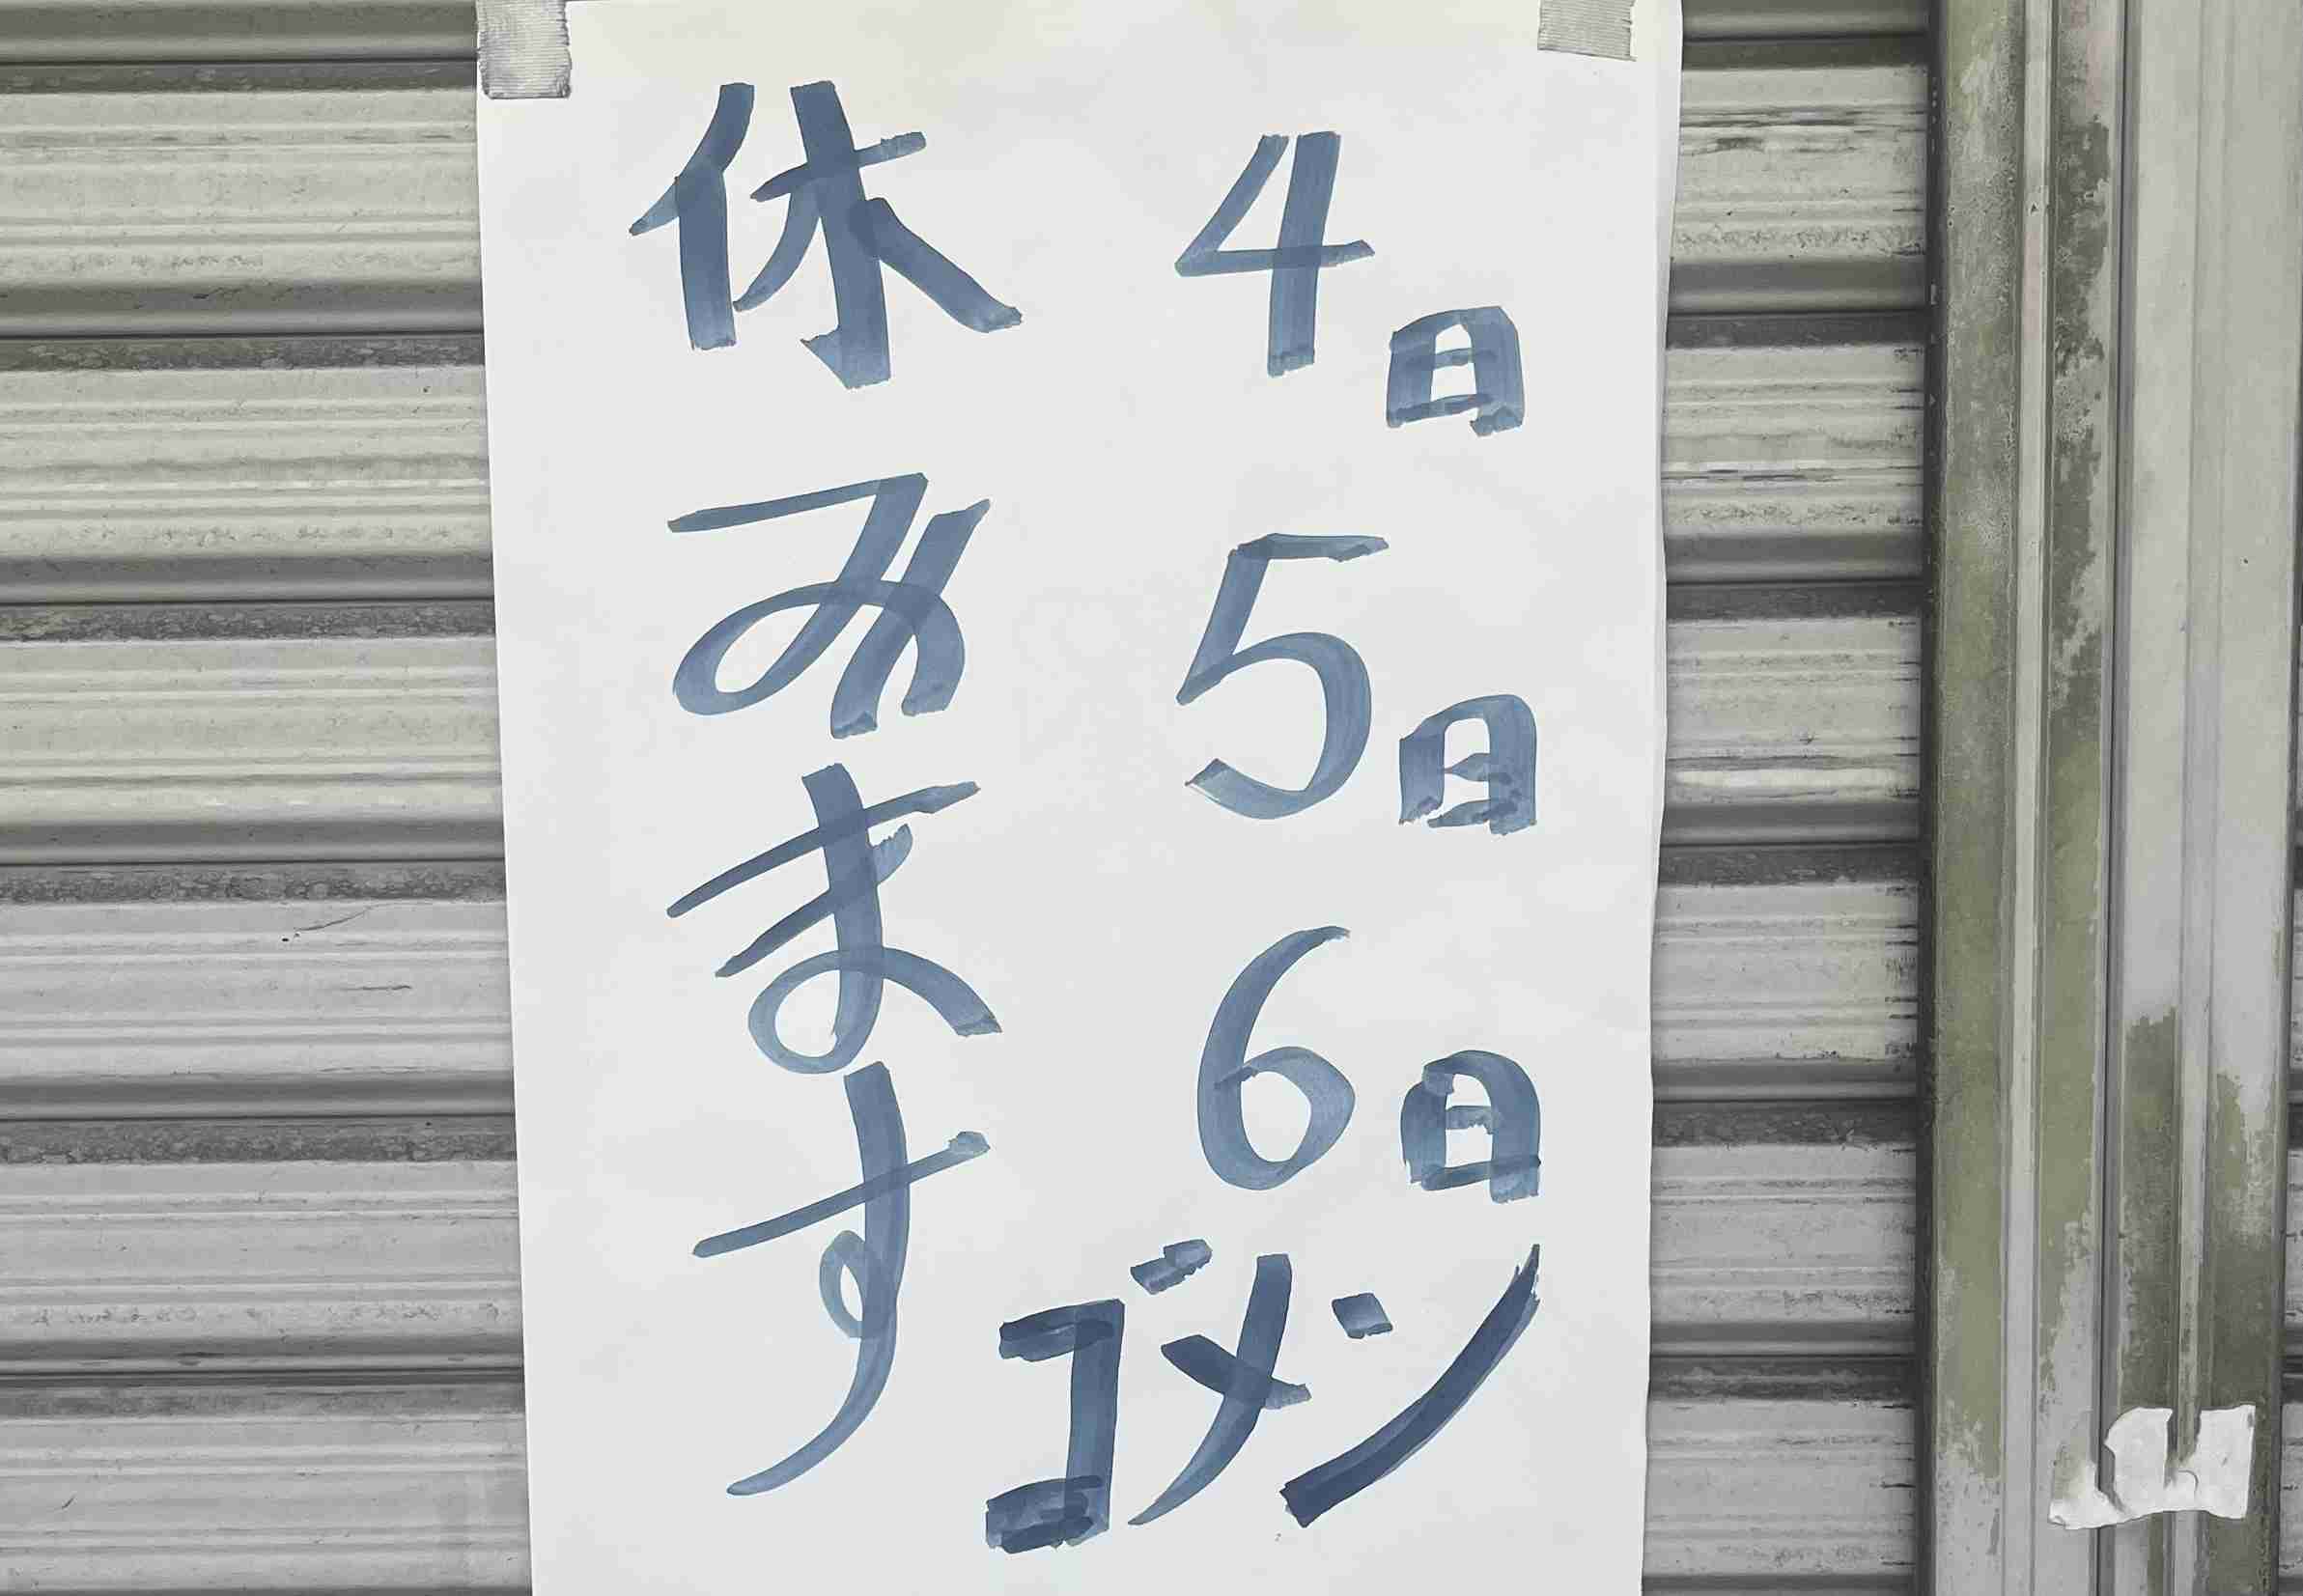 4日
5日
6日
休みます
ゴメン